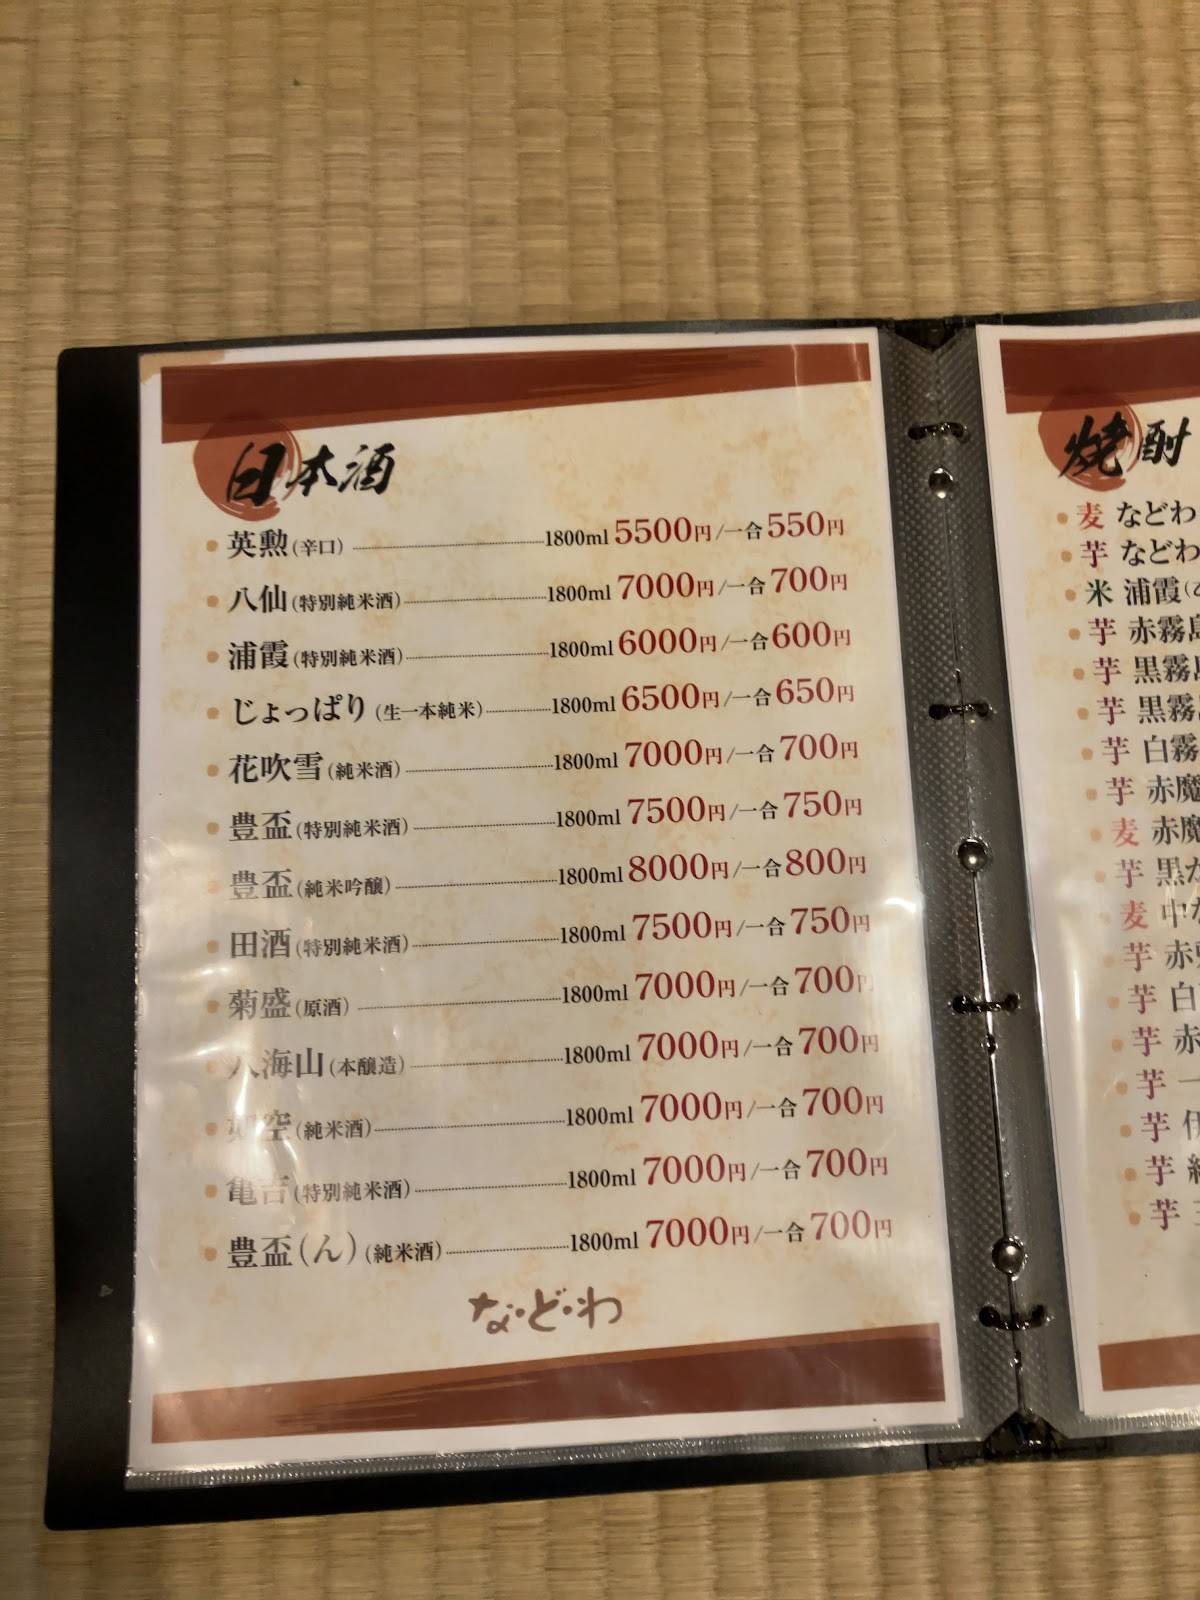 日本酒
英勲(辛口) 1800ml 5500円/一合550円
八仙(特別純米酒) 1800ml 7000円/一合700円
浦霞(特別純米酒) 1800ml 6000円/一合600円
じょっぱり(生一本純米) 1800ml 6500円/一合650円
花吹雪(純米酒) 1800ml 7000円/一合700円
豊盃(特別純米酒) 1800ml 7500円/一合750円
豊盃(純米吟醸) 1800ml 8000円/一合800円
田酒(特別純米酒) 1800ml 7500円/一合750円
菊盛(原酒) 1800ml 7000円/一合700円
八海山(本醸造) 1800ml 7000円/一合700円
空(純米酒) 1800ml 7000円/一合700円
亀吉(特別純米酒) 1800ml 7000円/一合700円
豊盃(ん)(純米酒) 1800ml 7000円/一合700円
な・ど・わ
焼酎
麦 などわ
芋 などわ
米 浦霞
芋 赤霧島
芋 黒霧島
芋 黒霧
芋 白霧
芋 赤魔
麦 赤魔
芋 黒
麦 中
芋 赤
芋 白
芋 赤
芋 一
芋 伊
芋
芋